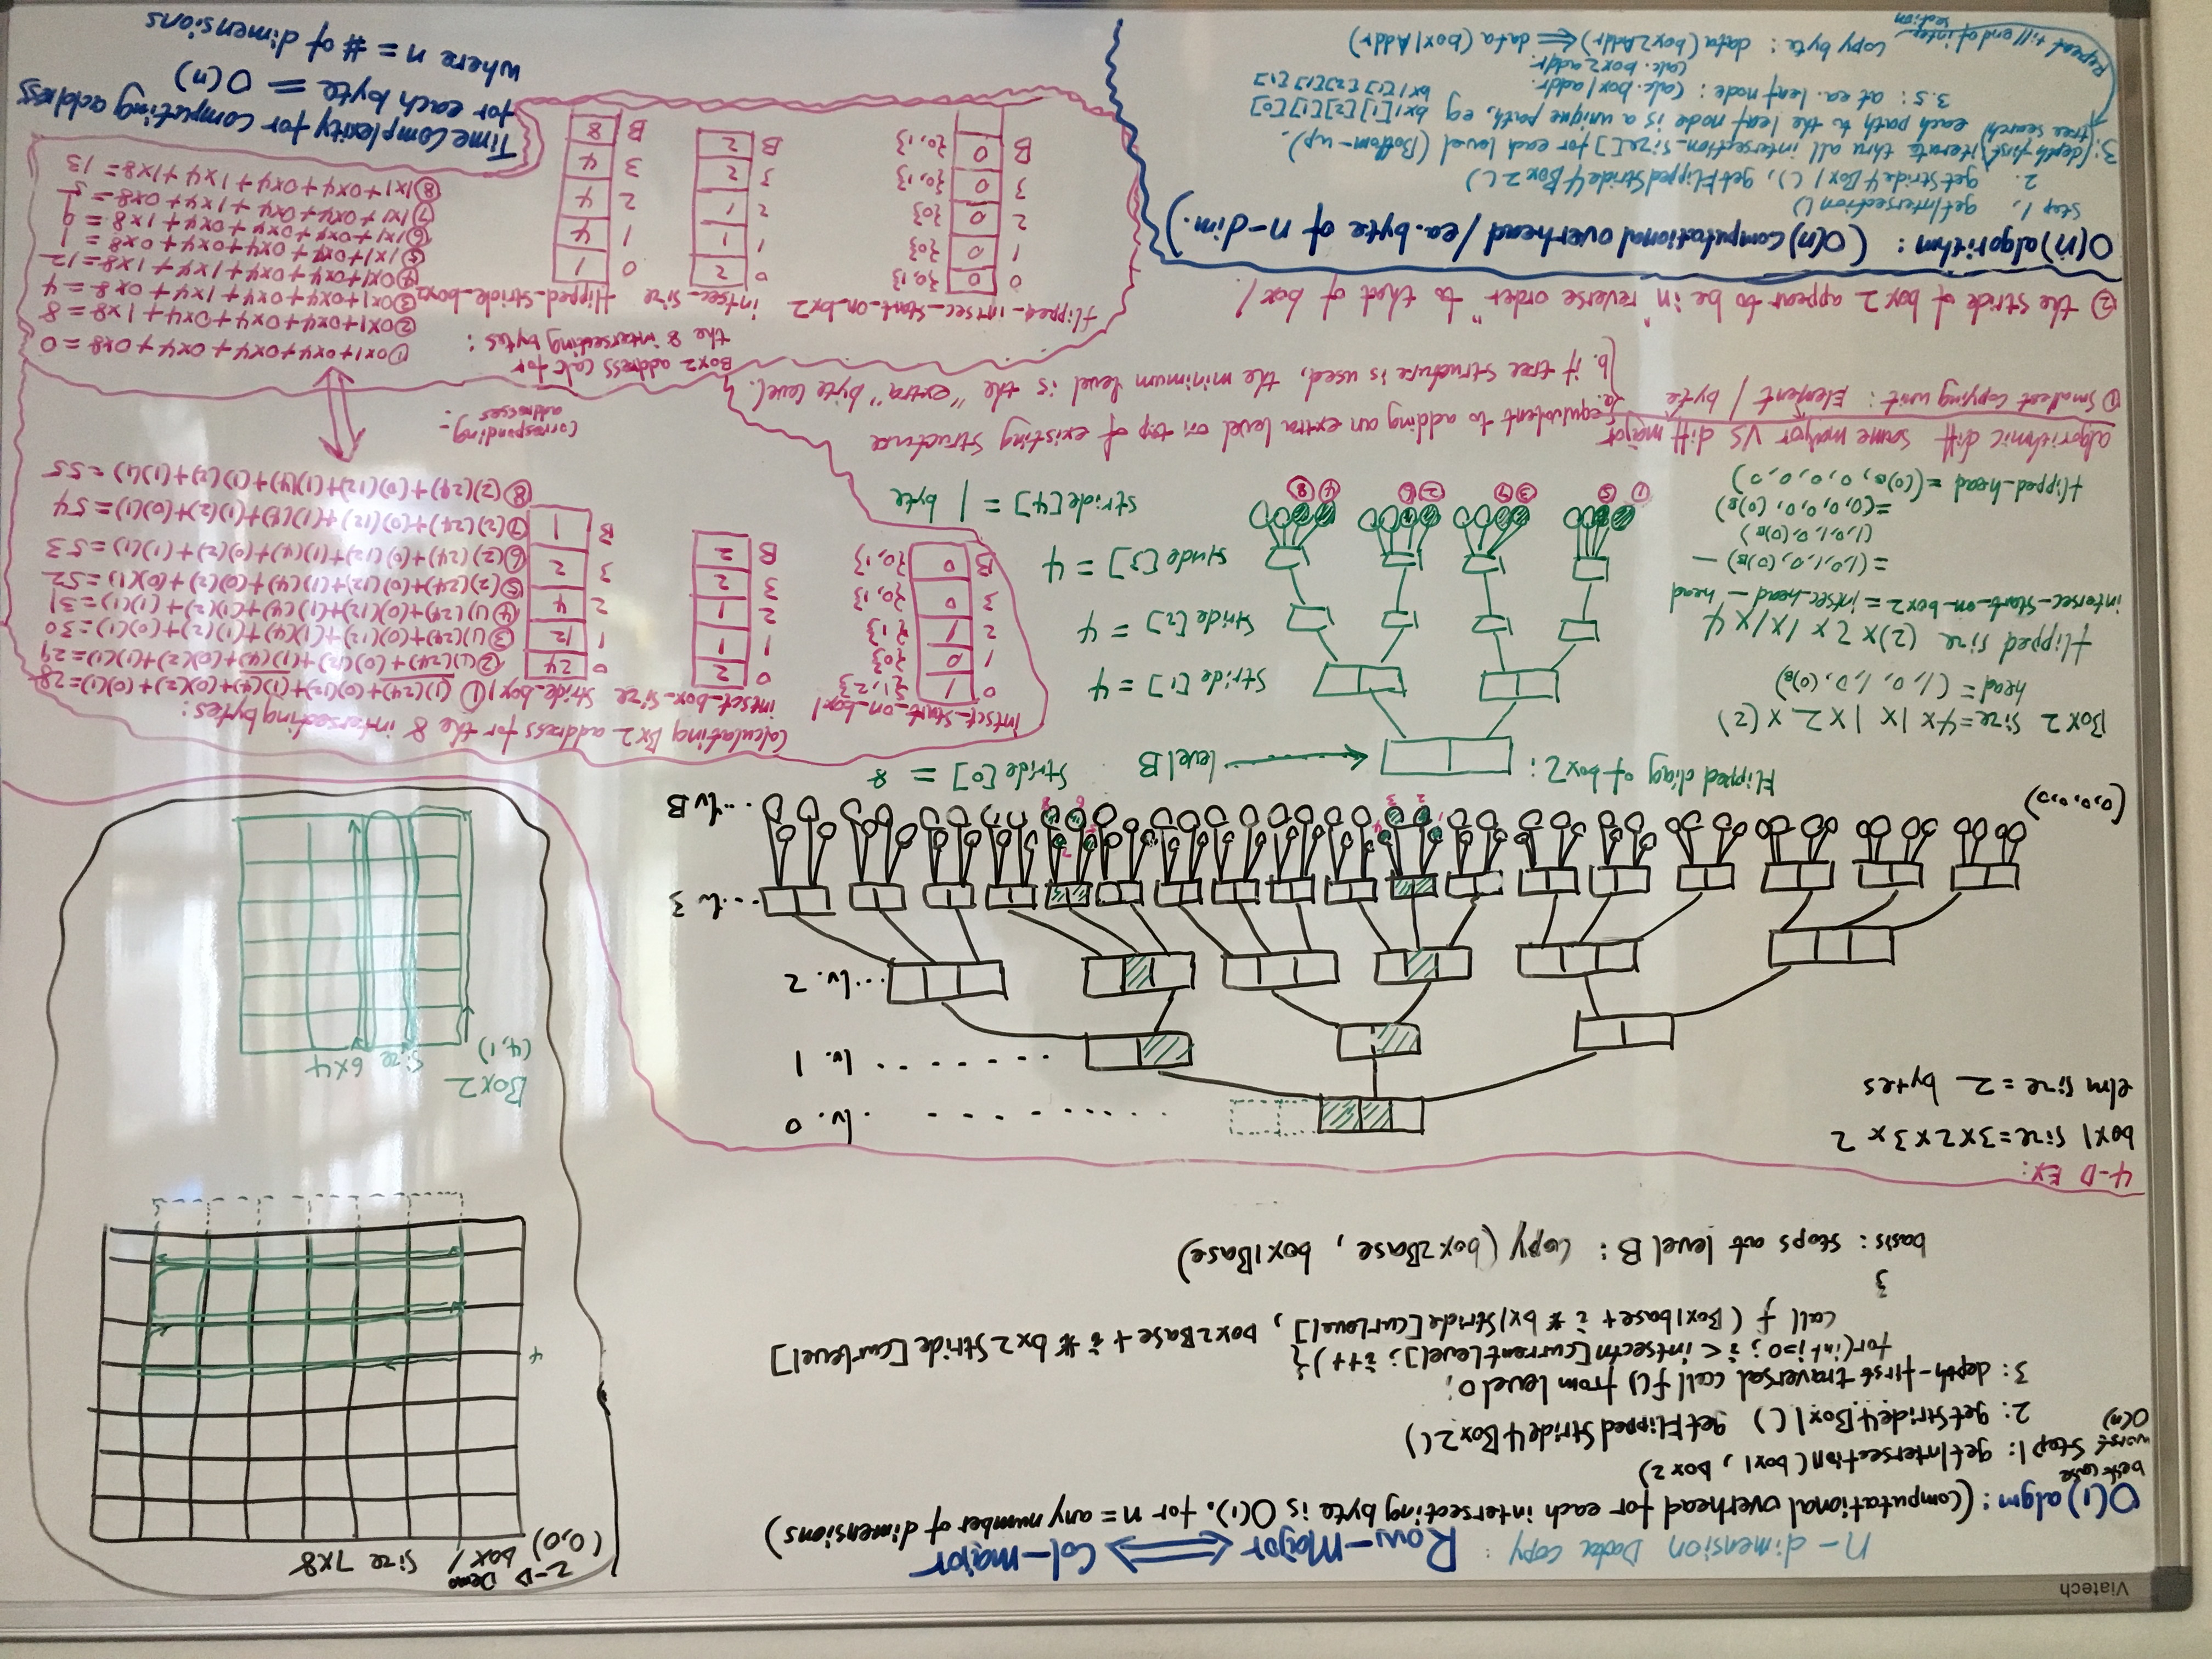 Viatech
n-dimension Data copy : Row-Major ⟺ Col-major
O(1) algm : (Computational overhead for each intersecting byte is O(1). for n = any number of dimensions)
best case
worst
O(n)
Step 1: getIntersection(box1, box2)
2: getStride4Box1() getFlippedStride4Box2()
3: depth-first traversal call f() from level 0;
for(int i=0; i < intsectn[currentLevel]; i++){
call f (Box1base + i * bx1Stride[curLevel], box2Base + i * bx2Stride[curlevel]
}
basis: stops at level B: Copy (box2Base, box1Base)
2-D Demo
(0,0) box1 size 7x8
4
Box2
(4,1) size 6x4
4-D EX:
box1 size = 3x2x3x2
elm size = 2 bytes
lv. 0
lv. 1
lv. 2
lv 3
(0,0,0,0)
lv B
Flipped diag of box2:
level B
Stride[0] = 8
Stride[1] = 4
Stride[2] = 4
stride[3] = 4
stride[4] = 1 byte
① ⑤ ③ ⑦ ② ⑥ ④ ⑧
Box2 size = 4x1x1x2x(2)
head = (1, 0, 1, 0, (0)B)
flipped size (2)x2x1x1x4
intersec-start-on-box2 = intsec-head - head
= (1,0,1,0,(0)B) -
(1,0,1,0,(0)B)
= (0,0,0,0,(0)B)
flipped-head = ((0)B, 0, 0, 0, 0)
Calculating Bx2 address for the 8 intersecting bytes:
intsct-start-on-box1
0 1 {1,2}
1 0 {0}
2 1 {1}
3 0 {0,1}
B 0 {0,1}
intsct-box-size
0 2
1 1
2 1
3 2
B 2
Stride-box1
0 24
1 12
2 4
3 2
B 1
① (1)(24)+(0)(12)+(1)(4)+(0)(2)+(0)(1)=28
②(1)(24)+(0)(12)+(1)(4)+(0)(2)+(1)(1)=29
③(1)(24)+(0)(12)+(1)(4)+(1)(2)+(0)(1)=30
④(1)(24)+(0)(12)+(1)(4)+(1)(2)+(1)(1)=31
⑤(2)(24)+(0)(12)+(1)(4)+(0)(2)+(0)(1)=52
⑥(2)(24)+(0)(12)+(1)(4)+(0)(2)+(1)(1)=53
⑦(2)(24)+(0)(12)+(1)(4)+(1)(2)+(0)(1)=54
⑧(2)(24)+(0)(12)+(1)(4)+(1)(2)+(1)(1)=55
corresponding
addresses
algorithmic diff same major VS diff major
① Smallest copying unit: Element / byte
a. equivalent to adding an extra level on top of existing structure
b. if tree structure is used, the minimum level is the "extra" byte level.
② the stride of box2 appear to be in "reverse order" to that of box1.
Box2 address calc for
the 8 intersecting bytes:
flipped-intsec-start-on-bx2
0 0 {0,1}
1 0 {0}
2 0 {0}
3 0 {0,1}
B 0 {0,1}
intsec-size
0 2
1 1
2 1
3 2
B 2
flipped-stride-box2
0 1
1 4
2 4
3 4
B 8
①0x1+0x4+0x4+0x4+0x8=0
②0x1+0x4+0x4+0x4+1x8=8
③0x1+0x4+0x4+1x4+0x8=4
④0x1+0x4+0x4+1x4+1x8=12
⑤1x1+0x4+0x4+0x4+0x8=1
⑥1x1+0x4+0x4+0x4+1x8=9
⑦1x1+0x4+0x4+1x4+0x8=5
⑧1x1+0x4+0x4+1x4+1x8=13
O(n) algorithm: (O(n) computational overhead /ea. byte of n-dim.)
Step 1, getIntersection()
2. getStride4Box1(), getFlippedStride4Box2()
3: (depth-first tree search) iterate thru all intersection-size[] for each level (Bottom-up).
each path to the leaf node is a unique path, eg bx1[1][2][1][0]
bx1[1][2][1][1]
3.5: at ea. leaf node: calc. box1 addr.
calc. box2 addr.
copy byte: data(box2Addr) ⇐ data(box1Addr)
Repeat till end of intersection
Time complexity for computing address
for each byte = O(n)
where n = # of dimensions